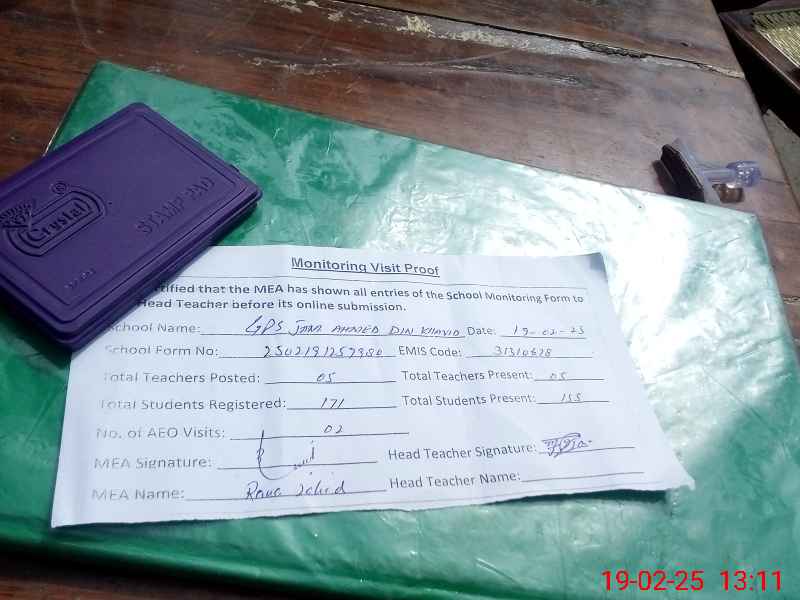 Crystal
STAMP PAD
Monitoring Visit Proof
tified that the MEA has shown all entries of the School Monitoring Form to
Head Teacher before its online submission.
School Name: GPS JAM AHMED DIN Date: 19-02-25
School Form No: EMIS Code: 31310628
Total Teachers Posted: 05 Total Teachers Present: 05
Total Students Registered: 171 Total Students Present: 155
No. of AEO Visits: 02
MEA Signature: Head Teacher Signature:
MEA Name: Head Teacher Name:
19-02-25 13:11